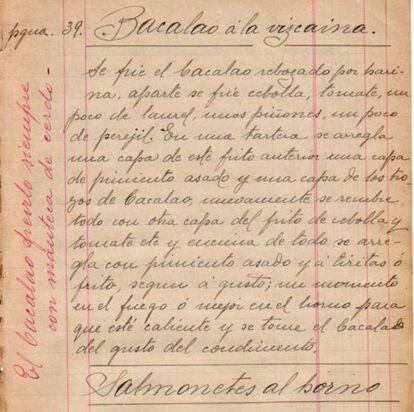 pgna. 39. Bacalao á la viscaina.
Se frie el bacalao rebozado por hari
na, aparte se frie cebolla, tomate, un
poco de laurel, unos piñones, un poco
de perejil. En una tartera se arregla
una capa de este frito anterior una capa
de pimiento asado y una capa de los tro
zos de bacalao, nuevamente se recubre
todo con otra capa del frito de cebolla y
tomate etc y encima de todo se arre-
gla con pimiento asado y á tiritas ó
frito, segun á gusto; un momento
en el fuego ó mejor en el horno para
que esté caliente y se tome el bacalao
del gusto del condimento.
Salmonetes al horno
El bacalao freirlo siempre
con manteca de cerdo -